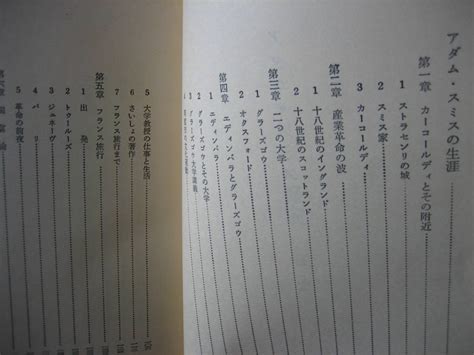 アダム・スミスの生涯
第一章 カーコールディとその附近
1 ストラセンリの城
2 スミス家
3 カーコールディ
第二章 産業革命の波
1 十八世紀のイングランド
2 十八世紀のスコットランド
第三章 二つの大学
1 グラーズゴウ
2 オクスフォード
第四章 エディンバラとグラーズゴウ
1 エディンバラ
2 グラーズゴウとその大学
3 グラーズゴウ大学講義
4
5 大学教授の仕事と生活
6 さいしょの著作
7 フランス旅行まで
第五章 フランス旅行
1 出発
2 トゥールーズ
3 ジュネーヴ
4 パリ
5 革命の前夜